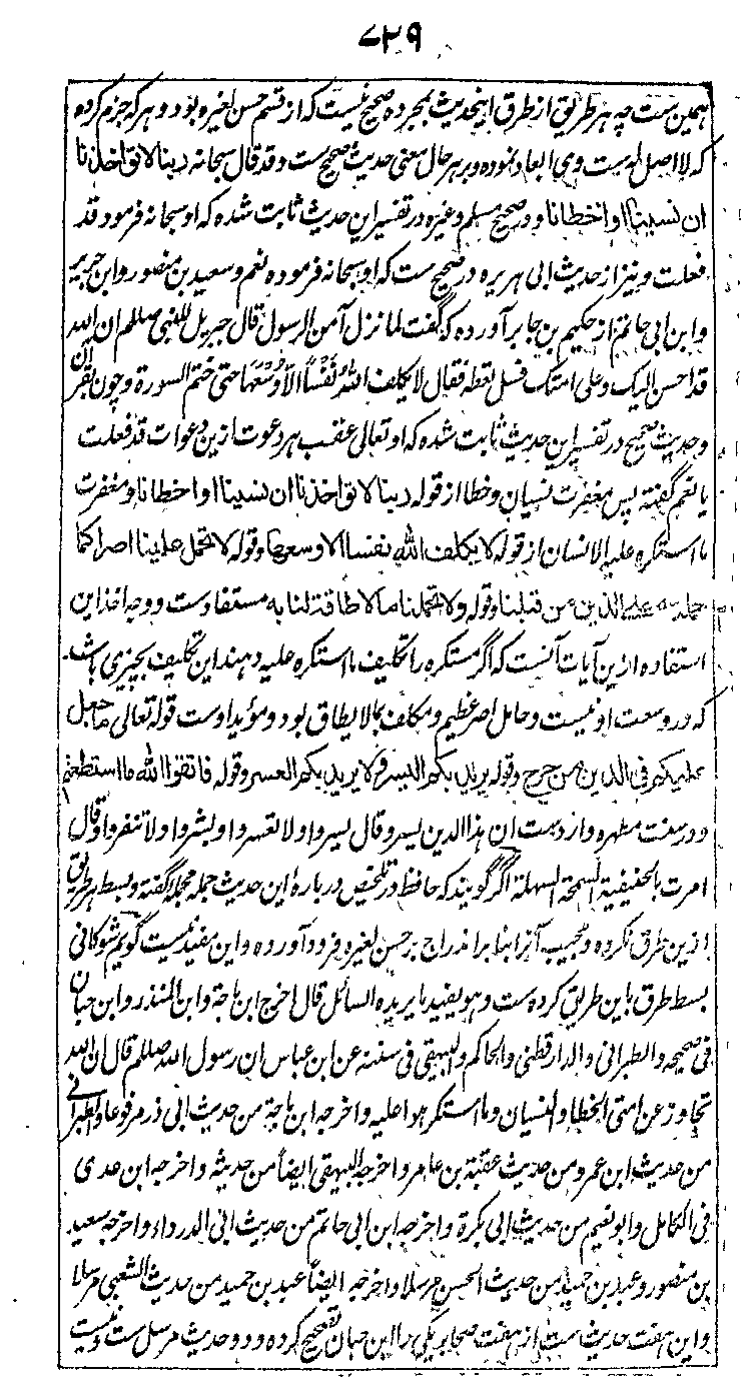 ۷۲۹
همین ست چه هر طریق از طرق اینحدیث بمجرده صحیح نیست که از قسم حسن لغیره بود و هر که جزم کرده
که لا اصل له ست وی ابعاد نموده و بر هر حال معنی حدیث صحیح ست و قد قال سبحانه ربنا لا تؤاخذنا
ان نسینا او اخطانا و در صحیح مسلم و غیره در تفسیر این حدیث ثابت شده که او سبحانه فرمود قد
فعلت و نیز از حدیث ابی هریره در صحیح ست که او سبحانه فرموده نعم و سعید بن منصور و ابن جریر
و ابن ابی حاتم از حکیم بن جابر آورده که گفت لما نزل آمن الرسول قال جبریل للنبی صللم ان الله
قد احسن الیک و علی امتک فسل تعطه فقال لا یکلف الله نفسا الا وسعها حتی ختم السورة و چون بقرآن
و حدیث صحیح در تفسیر این حدیث ثابت شده که او تعالی عقب هر دعوت ازین دعوات قد فعلت
یا نعم گفته پس مغفرت نسیان و خطا از قوله ربنا لا تؤاخذنا ان نسینا او اخطانا و مغفرت
ما استکره علیه الانسان از قوله لا یکلف الله نفسا الا وسعها و قوله لا تحمل علینا اصرا کما
حملته علی الذین من قبلنا و قوله ولا تحملنا ما لا طاقة لنا به مستفادست و وجه اخذ این
استفاده ازین آیات آنست که اگر مستکره را تکلیف ما استکره علیه دهند این تکلیف بچیزی باشد
که در وسعت او نیست و حامل اصر عظیم و مکلف بما لا یطاق بود و مؤید اوست قوله تعالی ما جعل
علیکم فی الدین من حرج و قوله یرید بکم الیسر ولا یرید بکم العسر و قوله فاتقوا الله ما استطعتم
و در سنت مطهره وارد ست ان هذا الدین یسر و قال یسروا ولا تعسروا و بشروا ولا تنفروا و قال
امرت بالحنیفیة السمحة السهلة اگر گویند که حافظ در تلخیص درباره این حدیث جمله مجمله گفته و بسط هر طریق
ازین طرق نکرده و مجیب آنرا بنا بر اندراج بر حسن لغیره فرود آورده و این مفید نیست گویم شوکانی
بسط طرق باین طریق کرده ست و هو یفید ما یریده السائل قال اخرج ابن ماجة و ابن المنذر و ابن حبان
فی صحیحه و الطبرانی و الدارقطنی و الحاکم و البیهقی فی سننه عن ابن عباس ان رسول الله صللم قال ان الله
تجاوز عن امتی الخطا و النسیان و ما استکرهوا علیه و اخرجه ابن ماجة من حدیث ابی ذر مرفوعا و الطبرانی
من حدیث ابن عمر و من حدیث عقبة بن عامر و اخرجه البیهقی ایضا من حدیثه و اخرجه ابن عدی
فی الکامل و ابو نعیم من حدیث ابی بکرة و اخرجه ابن ابی حاتم من حدیث ابی الدرداء و اخرجه سعید
بن منصور و عبد بن حمید من حدیث الحسن مرسلا و اخرجه ایضا عبد بن حمید من حدیث الشعبی مرسلا
و این هفت حدیث ست از هفت صحابه یکی را ابن حبان تصحیح کرده و دو حدیث مرسل ست و نیست